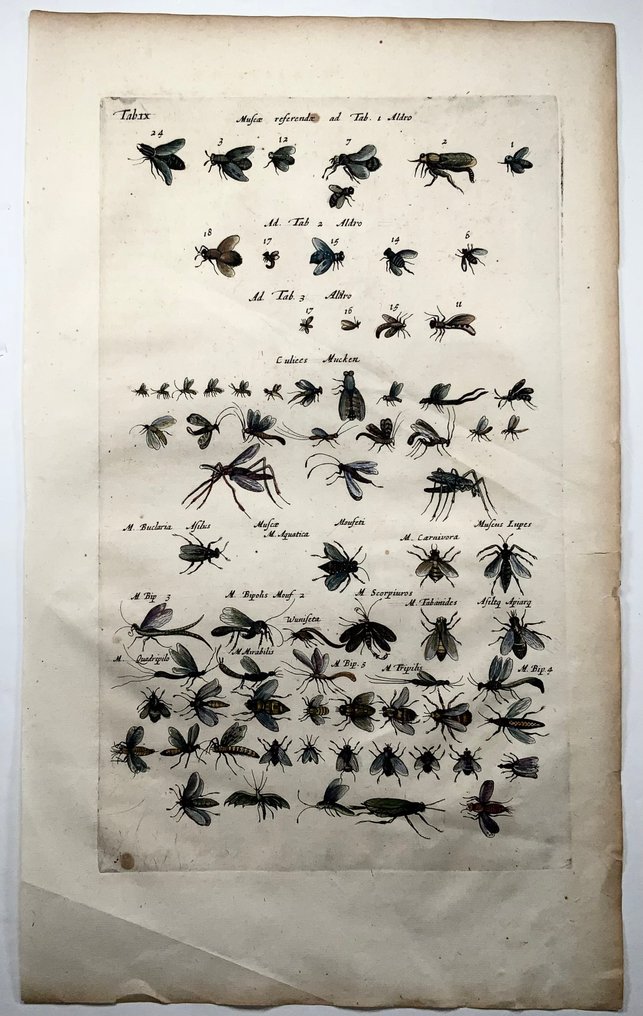 Tab IX
Muſcæ referendæ ad Tab. 1 Aldro
24 3 12 7 2 1
Ad. Tab 2 Aldro
18 17 15 14 6
Ad. Tab. 3 Aldro
17 16 15 11
Culices Mucken
M. Buclaria Aſilus Muſcæ Moufeti Muſcus Lupus
M. Aquatica M. Carnivora
M. Bip 3 M. Bipolis Mouf 2 M. Scorpiuros
M. Tabanides Aſilꝗ Apiarꝗ
M. Quadripilo M Mirabilis M Bip. 5 M Tripilis M. Bip. 4